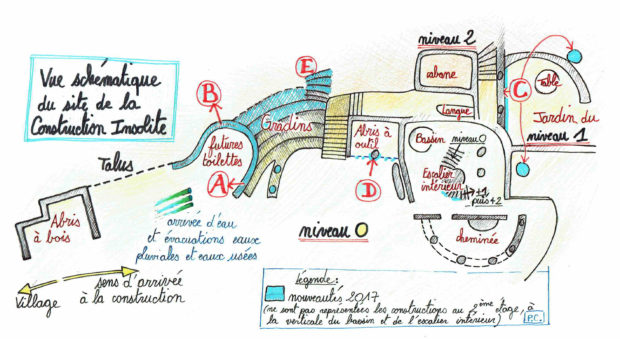 niveau 2
Vue schématique
du site de la
Construction Insolite
E
B
C
cabane
table
Langue
Jardin du
niveau 1
Gradins
Abris à
outil
Bassin
niveau 0
futures
toilettes
Talus
A
D
Escalier
intérieur
+1
puis+2
Abris
à bois
arrivée d'eau
et évacuations eaux
pluviales et eaux usées
niveau 0
cheminée
sens d'arrivée
à la construction
Village
légende:
nouveautés 2017
(ne sont pas représentées les constructions au 2ème étage, à
la verticale du bassin et de l'escalier intérieur)
P.C.